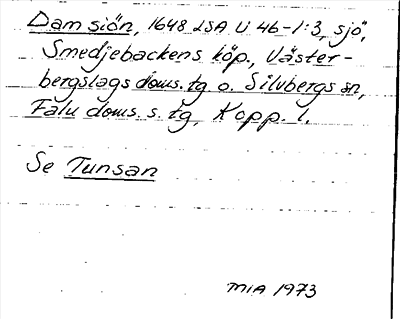 Damsiön, 1648 LSA U 46-1:3, sjö,
Smedjebackens köp., Väster-
bergslags doms. tg o. Silvbergs sn,
Falu doms. s. tg, Kopp. l.
Se Tunsan
MIA 1973